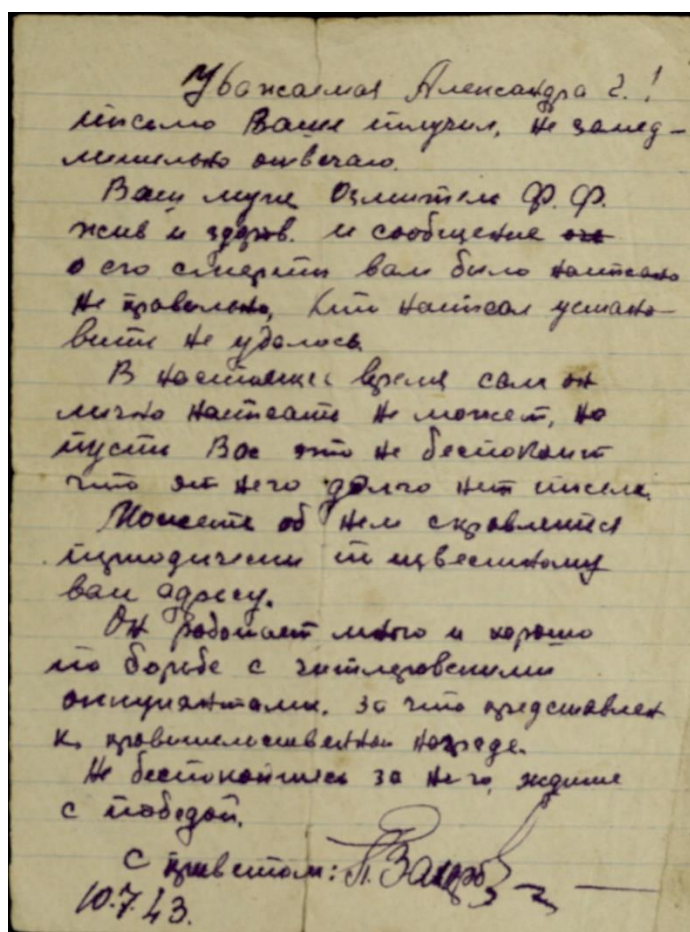 Уважаемая Александра Г.!
письмо Ваше получил, не замед-
лительно отвечаю.
Ваш муж Озмитель Ф. Ф.
жив и здоров. и сообщение
о его смерти вам было написано
не правильно, кто написал устано-
вить не удалось.
В настоящее время сам он
лично написать не может, но
пусть Вас это не беспокоит
что от него долго нет писем.
Можете об нем справлятся
периодически по известному
вам адресу.
Он работает много и хорошо
по борьбе с гитлеровскими
оккупантами. за что представлен
к правительственной награде.
Не беспокойтесь за него, ждите
с победой.
С приветом: П. Захаров
10.7.43.